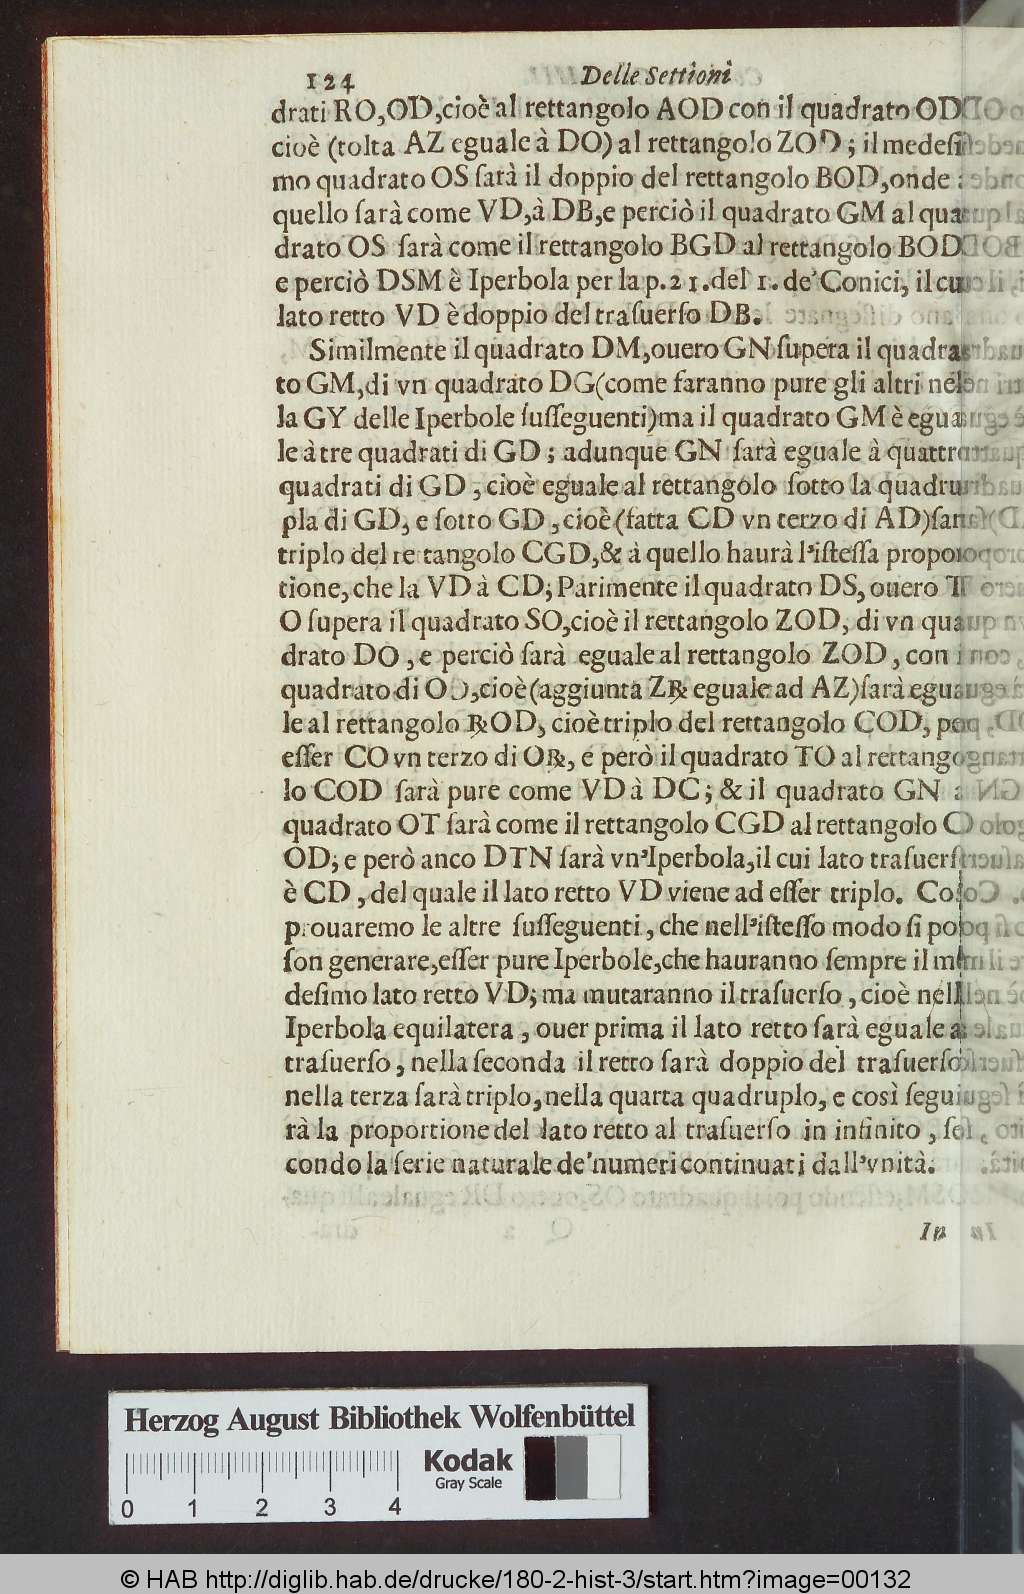 124 Delle Settioni
drati RO,OD,cioè al rettangolo AOD con il quadrato OD
cioè (tolta AZ eguale à DO) al rettangolo ZOD ; il medeſi
mo quadrato OS ſarà il doppio del rettangolo BOD,onde
quello ſarà come VD,à DB,e perciò il quadrato GM al qua
drato OS ſarà come il rettangolo BGD al rettangolo BOD
e perciò DSM è Iperbola per la p.21.del 1. de' Conici, il cu
lato retto VD è doppio del traſuerſo DB.
Similmente il quadrato DM,ouero GN ſupera il quadra
to GM,di vn quadrato DG(come faranno pure gli altri nel
la GY delle Iperbole ſuſſeguenti)ma il quadrato GM è egua
le à tre quadrati di GD ; adunque GN ſarà eguale à quattro
quadrati di GD , cioè eguale al rettangolo ſotto la quadru
pla di GD, e ſotto GD , cioè (fatta CD vn terzo di AD)ſarà
triplo del rettangolo CGD,& à quello haurà l'iſteſſa propor
tione, che la VD à CD; Parimente il quadrato DS, ouero T
O ſupera il quadrato SO,cioè il rettangolo ZOD, di vn qua
drato DO , e perciò ſarà eguale al rettangolo ZOD , con i
quadrato di OD,cioè (aggiunta Z℞ eguale ad AZ)ſarà egua
le al rettangolo ℞OD, cioè triplo del rettangolo COD, per
eſſer CO vn terzo di O℞, e però il quadrato TO al rettango
lo COD ſarà pure come VD à DC ; & il quadrato GN a
quadrato OT ſarà come il rettangolo CGD al rettangolo C
OD; e però anco DTN ſarà vn'Iperbola,il cui lato traſuerſ
è CD , del quale il lato retto VD viene ad eſſer triplo. Coſ
prouaremo le altre ſuſſeguenti , che nell'iſteſſo modo ſi poſ
ſon generare,eſſer pure Iperbole,che hauranno ſempre il me
deſimo lato retto VD; ma mutaranno il traſuerſo , cioè nell
Iperbola equilatera , ouer prima il lato retto ſarà eguale a
traſuerſo , nella ſeconda il retto ſarà doppio del traſuerſo
nella terza ſarà triplo, nella quarta quadruplo, e così ſegui
rà la proportione del lato retto al traſuerſo in infinito , ſe
condo la ſerie naturale de'numeri continuati dall'vnità.
In
Herzog August Bibliothek Wolfenbüttel
Kodak
Gray Scale
0 1 2 3 4
© HAB http://diglib.hab.de/drucke/180-2-hist-3/start.htm?image=00132